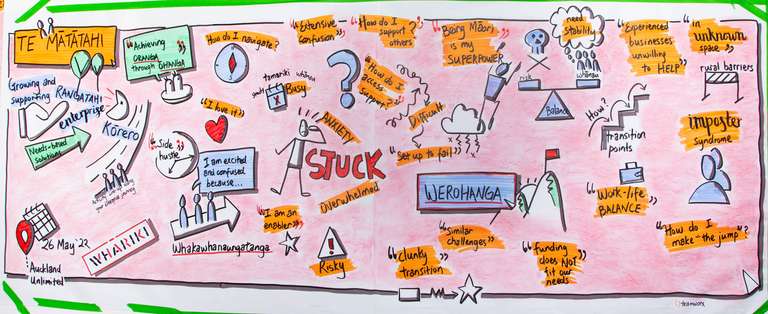 TE MĀTĀTAHI
Growing and
supporting RANGATAHI
enterprise
Needs-based
solutions
Kōrero
26 May '22
Auckland
Unlimited
WHĀRIKI
"Achieving
ORANGA
through OHANGA"
"I love it"
"Side
hustle"
I am excited
and confused
because...
Whakawhanaungatanga
How do I navigate?
tamariki
whānau
Busy
"Extensive
confusion"
"How do I
access
support?"
ANXIETY
STUCK
Overwhelmed
"I am an
enabler"
Risky
"How do I
support
others"
Difficult
"Set up to fail"
Being Māori
is my
SUPERPOWER
WEROHANGA
"Similar
challenges"
"Clunky
transition"
need
stability
risk
whānau
Balance
"funding
does NOT
fit our
needs"
"Experienced
businesses
unwilling
to HELP"
How?
transition
points
"Work-life
BALANCE"
"in
unknown
space"
rural barriers
imposter
syndrome
"How do I
make "the jump"?